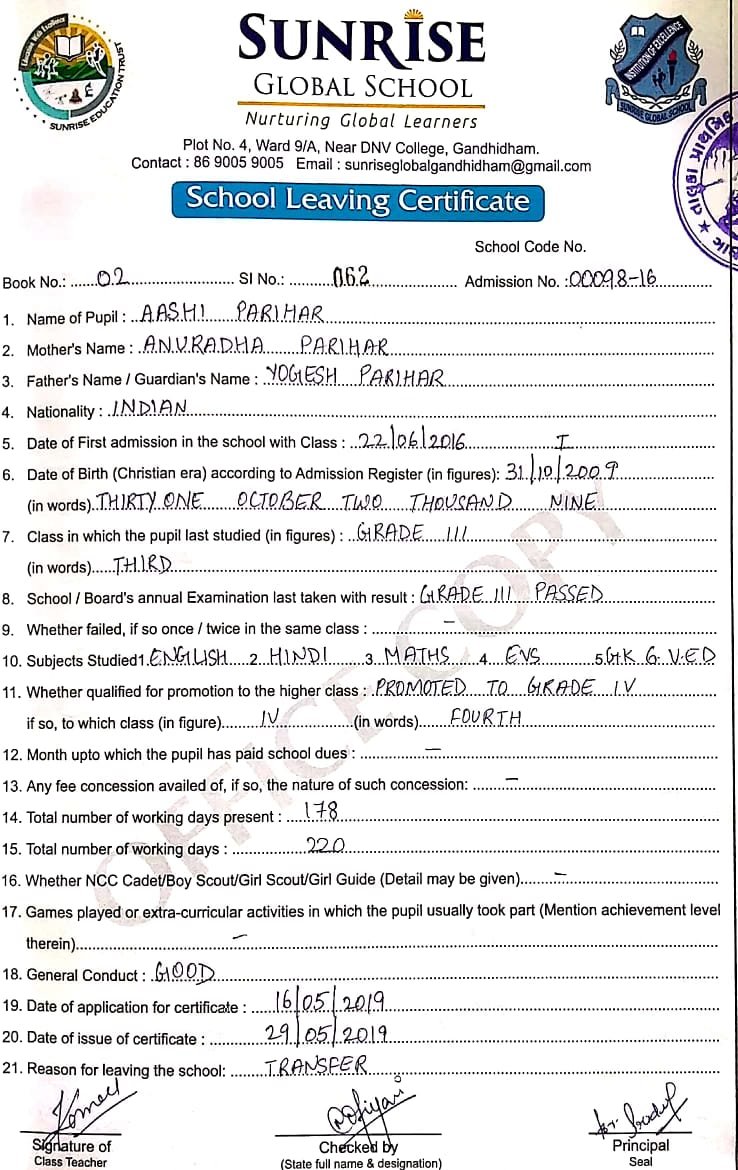 SUNRISE
GLOBAL SCHOOL
Nurturing Global Learners
SUNRISE EDUCATION TRUST
INSTITUTION OF EXCELLENCE
SUNRISE GLOBAL SCHOOL
Plot No. 4, Ward 9/A, Near DNV College, Gandhidham.
Contact : 86 9005 9005 Email : sunriseglobalgandhidham@gmail.com
School Leaving Certificate
School Code No.
Book No.: 02 SI No.: 062 Admission No. :00098-16
1. Name of Pupil : AASHI PARIHAR
2. Mother's Name : ANURADHA PARIHAR
3. Father's Name / Guardian's Name : YOGESH PARIHAR
4. Nationality : INDIAN
5. Date of First admission in the school with Class : 22/06/2016 I
6. Date of Birth (Christian era) according to Admission Register (in figures): 31/10/2009
(in words) THIRTY ONE OCTOBER TWO THOUSAND NINE
7. Class in which the pupil last studied (in figures) : GRADE III
(in words) THIRD
8. School / Board's annual Examination last taken with result : GRADE III PASSED
9. Whether failed, if so once / twice in the same class : –
10. Subjects Studied 1. ENGLISH 2. HINDI 3. MATHS 4. EVS 5. GK G. V.ED
11. Whether qualified for promotion to the higher class : PROMOTED TO GRADE IV
if so, to which class (in figure) IV (in words) FOURTH
12. Month upto which the pupil has paid school dues : –
13. Any fee concession availed of, if so, the nature of such concession: –
14. Total number of working days present : 178
15. Total number of working days : 220
16. Whether NCC Cadet/Boy Scout/Girl Scout/Girl Guide (Detail may be given) –
17. Games played or extra-curricular activities in which the pupil usually took part (Mention achievement level
therein) –
18. General Conduct : GOOD
19. Date of application for certificate : 16/05/2019
20. Date of issue of certificate : 29/05/2019
21. Reason for leaving the school: TRANSFER
OFFICE COPY
Signature of Checked by Principal
Class Teacher (State full name & designation) Seal